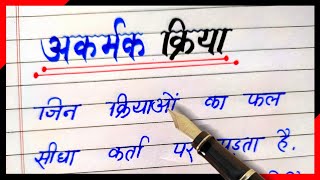 अकर्मक क्रिया
जिन क्रियाओं का फल
सीधा कर्ता पर पड़ता है.